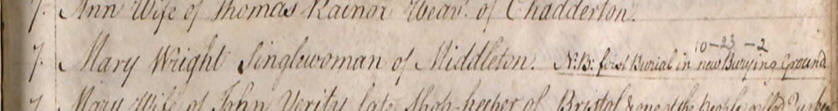 7. Ann Wife of Thomas Rainor Weavr. of Chadderton.
10-23-2
7. Mary Wright Singlewoman of Middleton. N:B: first Burial in new Burying Ground
7. Mary Wife of John Verity late Shop-keeper of Bristol & one of the People